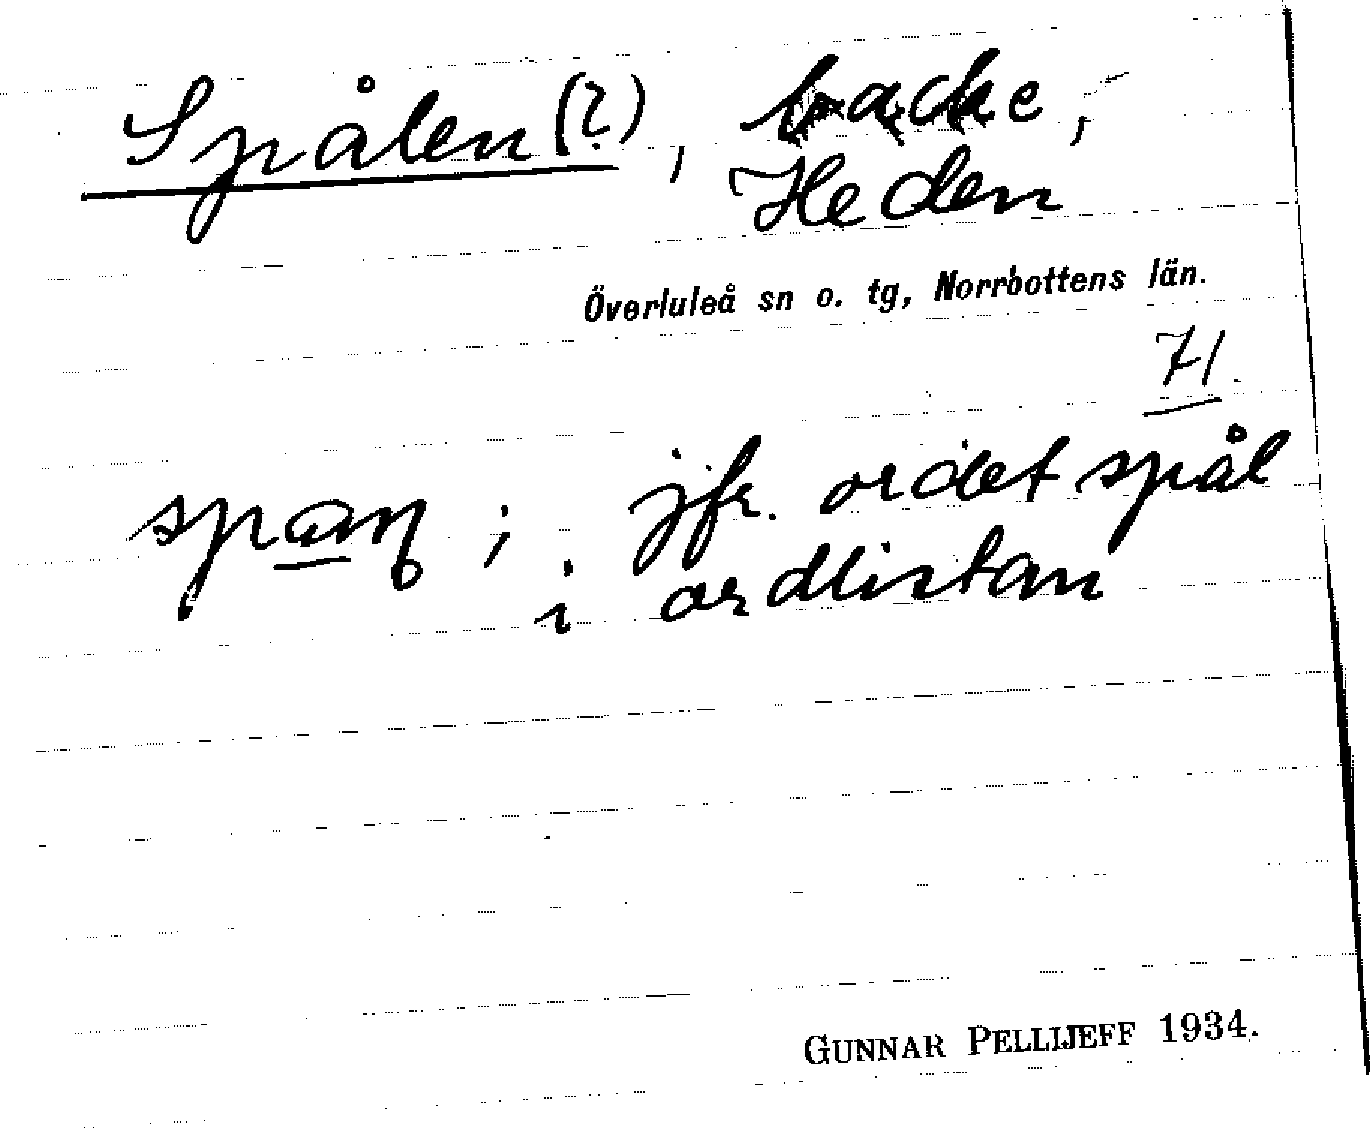 Spålen(?), backe,
Heden
Överluleå sn o. tg, Norrbottens län.
71.
jfr. ordet spål
i ordlistan
GUNNAR PELLIJEFF 1934.